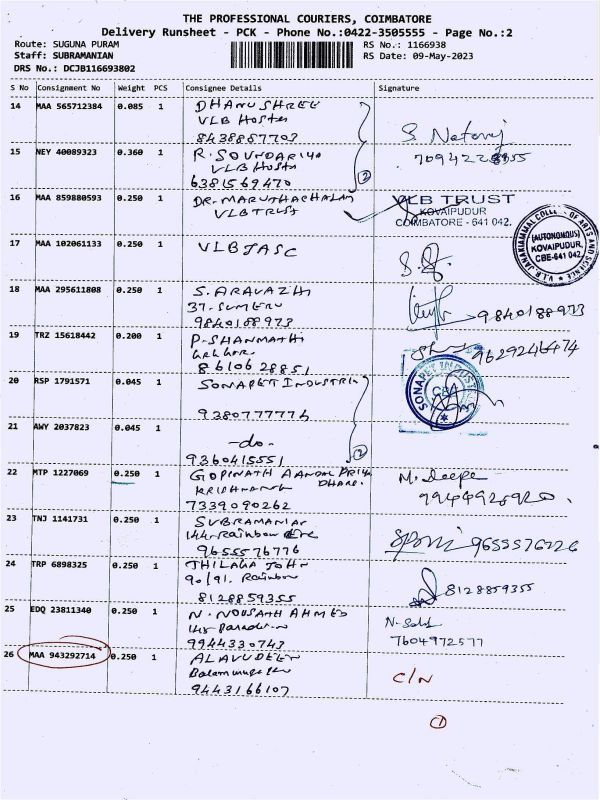 THE PROFESSIONAL COURIERS, COIMBATORE
Delivery Runsheet - PCK - Phone No.:0422-3505555 - Page No.:2
Route: SUGUNA PURAM
RS No.: 1166938
Staff: SUBRAMANIAN
RS Date: 09-May-2023
DRS No.: DCJB116693802
S No Consignment No Weight PCS Consignee Details Signature
14 MAA 565712384 0.085 1 DHANUSHREE
VLB Hostel
8438857703
S. Nataraj
7094228955
15 NEY 40089323 0.360 1 R. SOUNDARIYA
VLB Hostel
6381569470
2
16 MAA 859880593 0.250 1 DR. MARUTHACHALAM
VLB TRUST
VLB TRUST
KOVAIPUDUR
COIMBATORE - 641 042.
V.L.B. JANAKIAMMAL COLLEGE OF ARTS AND SCIENCE
(AUTONOMOUS)
KOVAIPUDUR,
CBE-641 042.
17 MAA 102061133 0.250 1 VLBJASC
18 MAA 295611808 0.250 1 S. ARAVAZHI
37. SUMERU
9840188973
9840188973
19 TRZ 15618442 0.200 1 P. SHANMATHI
8610628851
9629246474
20 RSP 1791571 0.045 1 SONAPET INDUSTRIA
9380777776
SONAPET INDUST
CBA
21 AWY 2037823 0.045 1 -do-
9360415551
2
22 MTP 1227069 0.250 1 GOPINATH AANDAL PRIYA
KRISHNANA DHARA.
7339090262
M. Deepa
9944928920.
23 TNJ 1141731 0.250 1 SUBRAMANIAN
144 Rainbow
9655576776
9655576776
24 TRP 6898325 0.250 1 THILAGA JOHN
90/91. Rainbow
8128859355
8128859355
25 EDQ 23811340 0.250 1 N. NOUSATH AHMED
148
9944330743
7604972577
26 MAA 943292714 0.250 1 ALAVUDEEN
9443166107
C/N
1